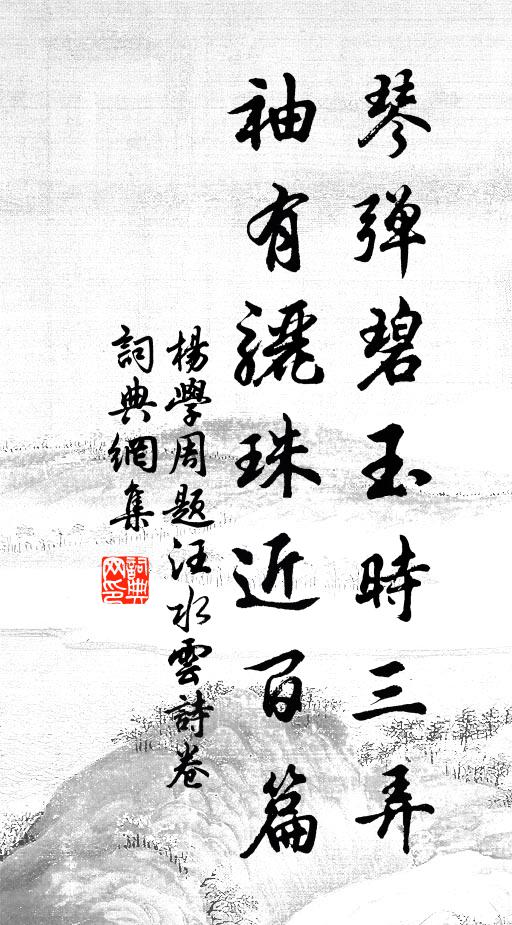 琴彈碧玉時三弄
袖有驪珠近百篇
楊學周題汪水雲詩卷
詞典網集
詞典網印